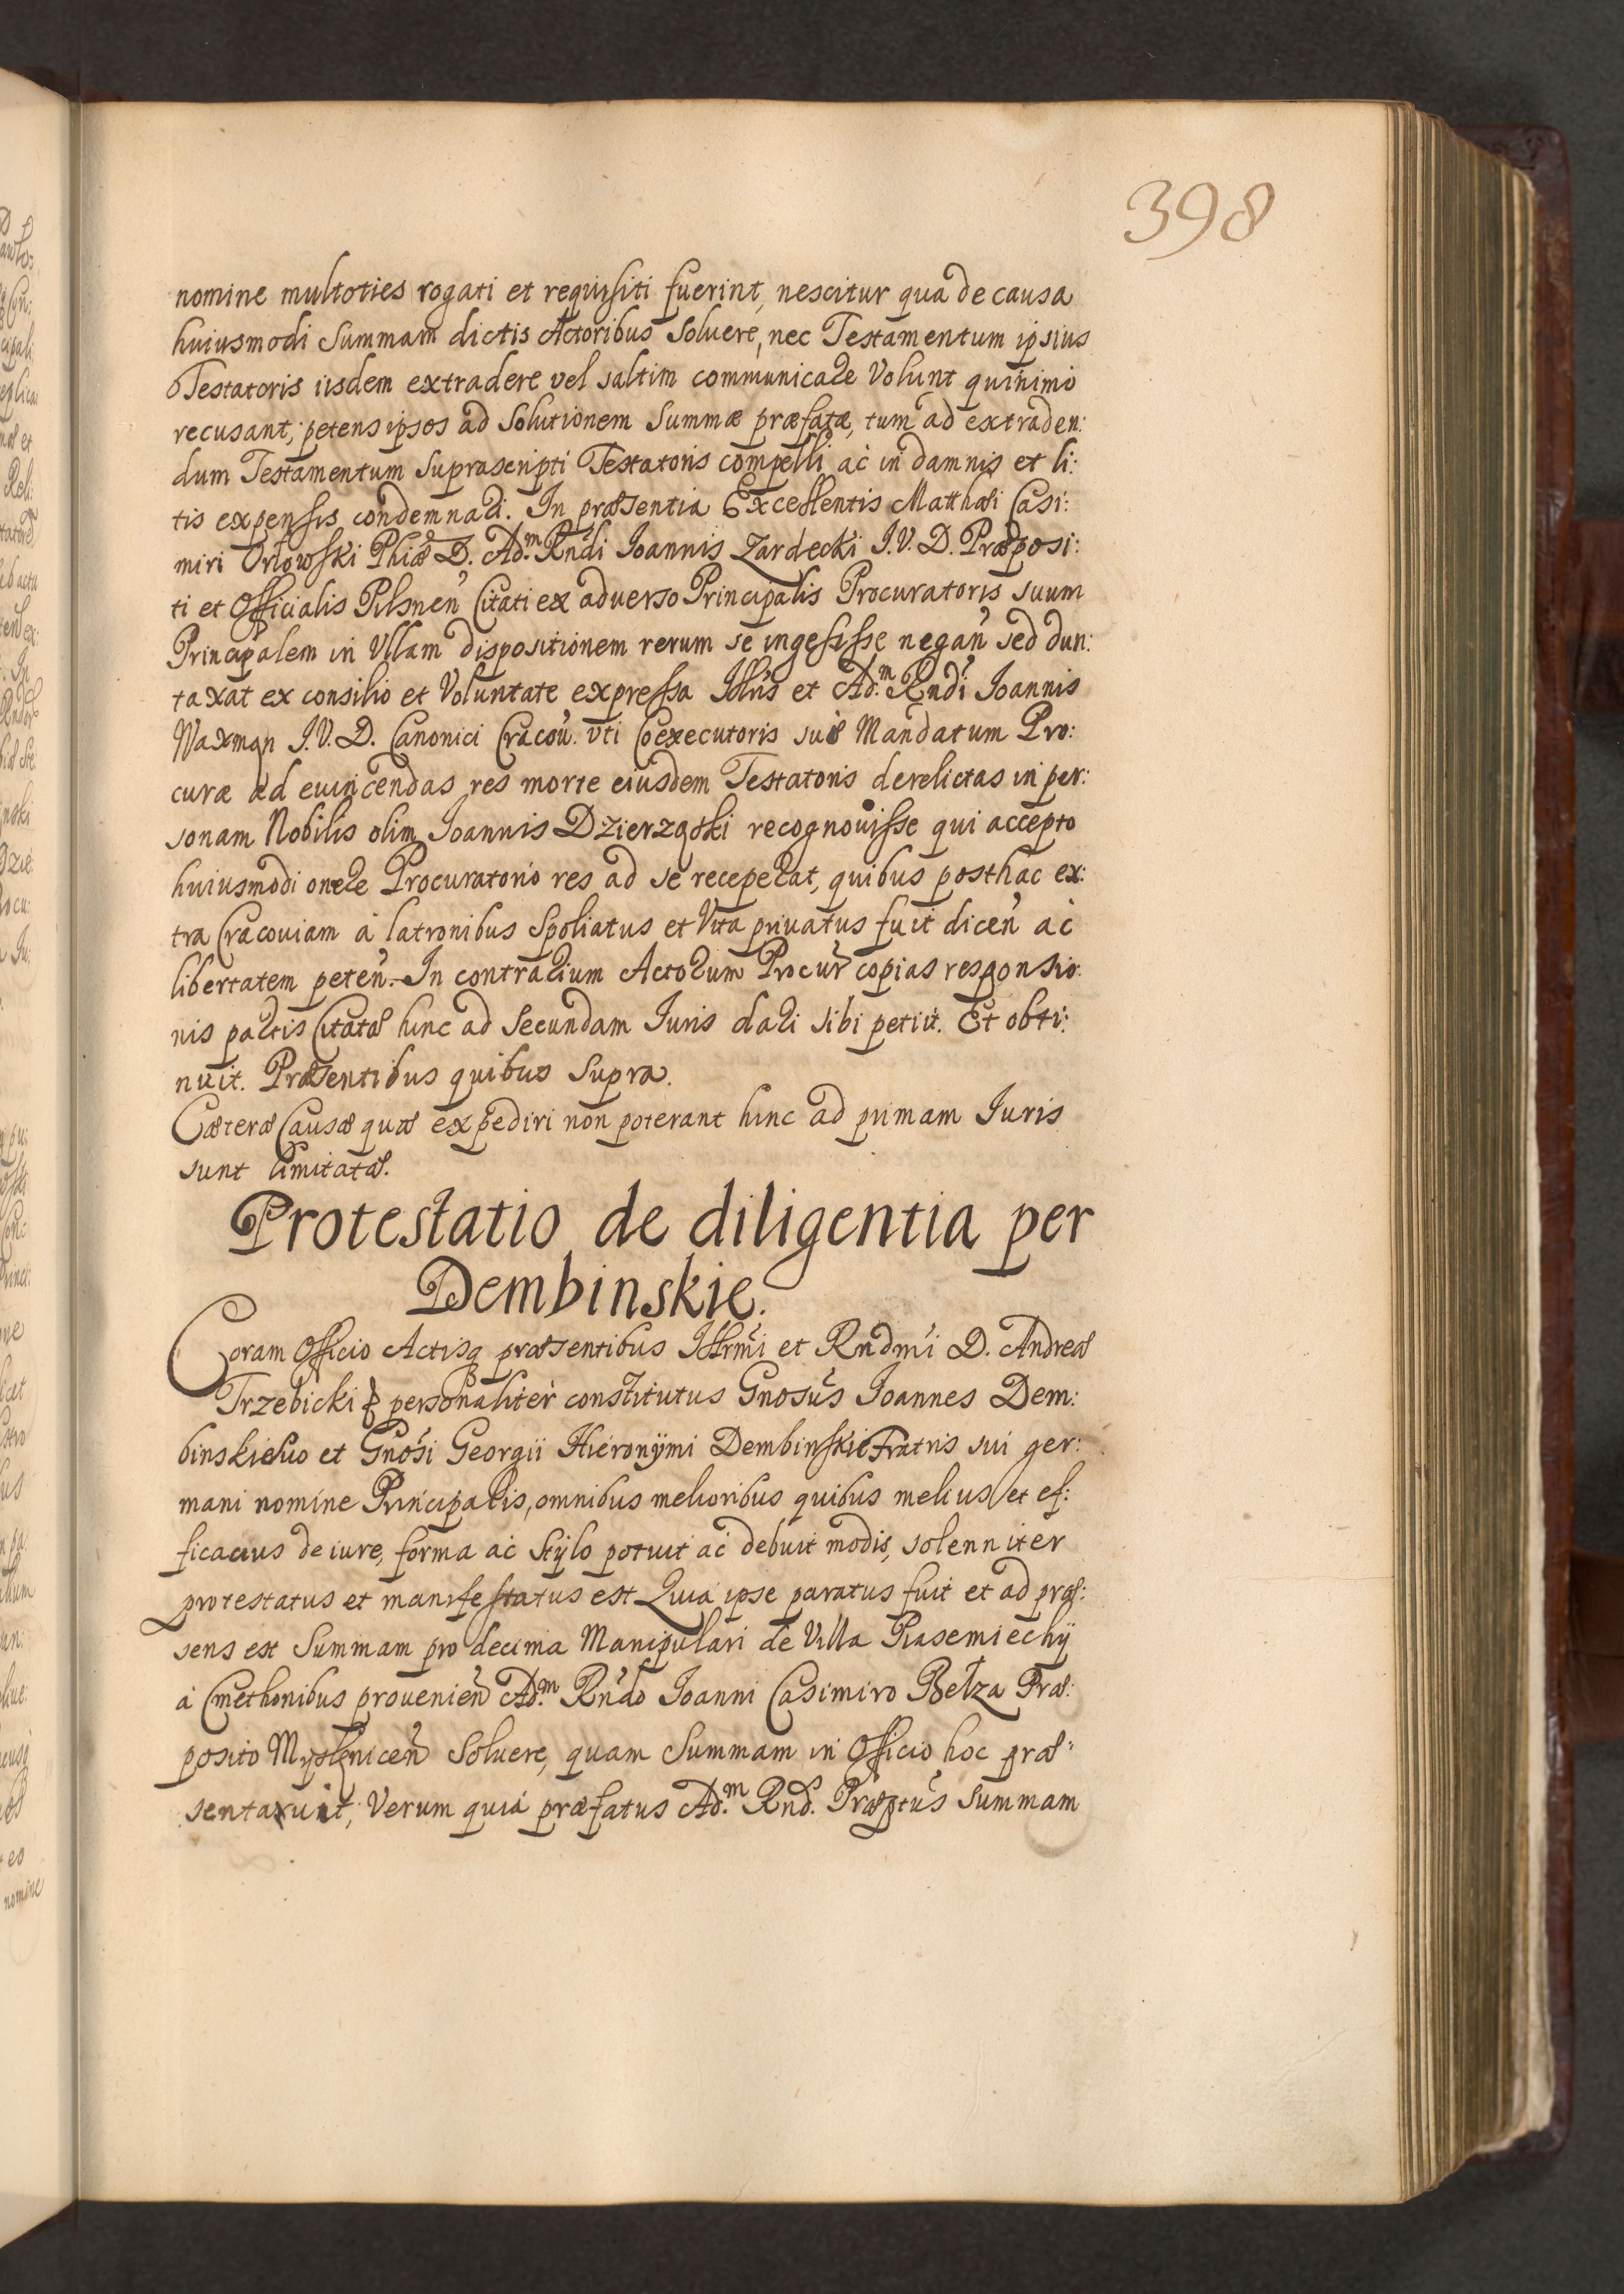 398
nomine multoties rogati et requisiti fuerint, nescitur qua de causa
huiusmodi Summam dictis Actoribus Soluere, nec Testamentum ipsius
Testatoris iisdem extradere vel saltim communicare Volunt quinimo
recusant, petens ipsos ad Solutionem Summæ præfatæ, tum ad extraden:
dum Testamentum Suprascripti Testatoris compelli ac in damnis et li:
tis expensis condemnari. In præsentia Excellentis Matthæi Casi:
miri Orłowski Phiæ D. Ad.m Rndi Ioannis Zardecki I.V.D. Præposi:
ti et Officialis Pilsnen Citati ex aduerso Principalis Procuratoris suum
Principalem in Vllam dispositionem rerum se ingessisse negan sed dun:
taxat ex consilio et Voluntate expressa Illris et Ad.m Rndi Ioannis
Waxman I.V.D. Canonici Cracou. vti Coexecutoris sui Mandatum Pro:
curæ ad euincendas res morte eiusdem Testatoris derelictas in per:
sonam Nobilis olim Ioannis Dzierząski recognouisse qui accepto
huiusmodi onere Procuratorio res ad se receperat, quibus posthac ex:
tra Cracouiam à latronibus Spoliatus et Vita priuatus fuit dicen ac
libertatem peten. In contrarium Actorum Procur copias responsio:
nis partis Citatæ hinc ad Secundam Iuris dari sibi petiit. Et obti:
nuit. Præsentibus quibus Supra.
Cæteræ Causæ quæ expediri non poterant hinc ad primam Iuris
sunt limitatæ.
Protestatio de diligentia per
Dembinskie.
Coram Officio Actisq præsentibus Illrmi et Rndmi D. Andreæ
Trzebicki & personaliter constitutus Gnosus Ioannes Dem:
binski suo et Gnosi Georgii Hieronÿmi Dembinskie Fratris sui ger:
mani nomine Principalis, omnibus melioribus quibus melius et ef:
ficacius de iure, forma ac Stÿlo potuit ac debuit modis, solenniter
protestatus et manifestatus est Quia ipse paratus fuit et ad præ:
sens est Summam pro decima Manipulari de Villa Piasemiechÿ
à Cmethonibus prouenien Ad.m Rndo Ioanni Casimiro Bełza Præ:
posito Myslenicen Soluere, quam Summam in Officio hoc præ:
sentauit, Verum quia præfatus Ad.m Rnd. Præptus Summam